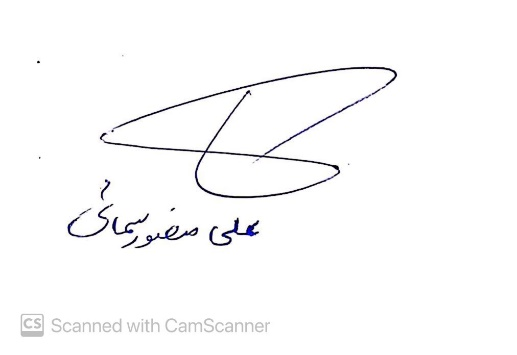 علی منصور سمائی
CS Scanned with CamScanner